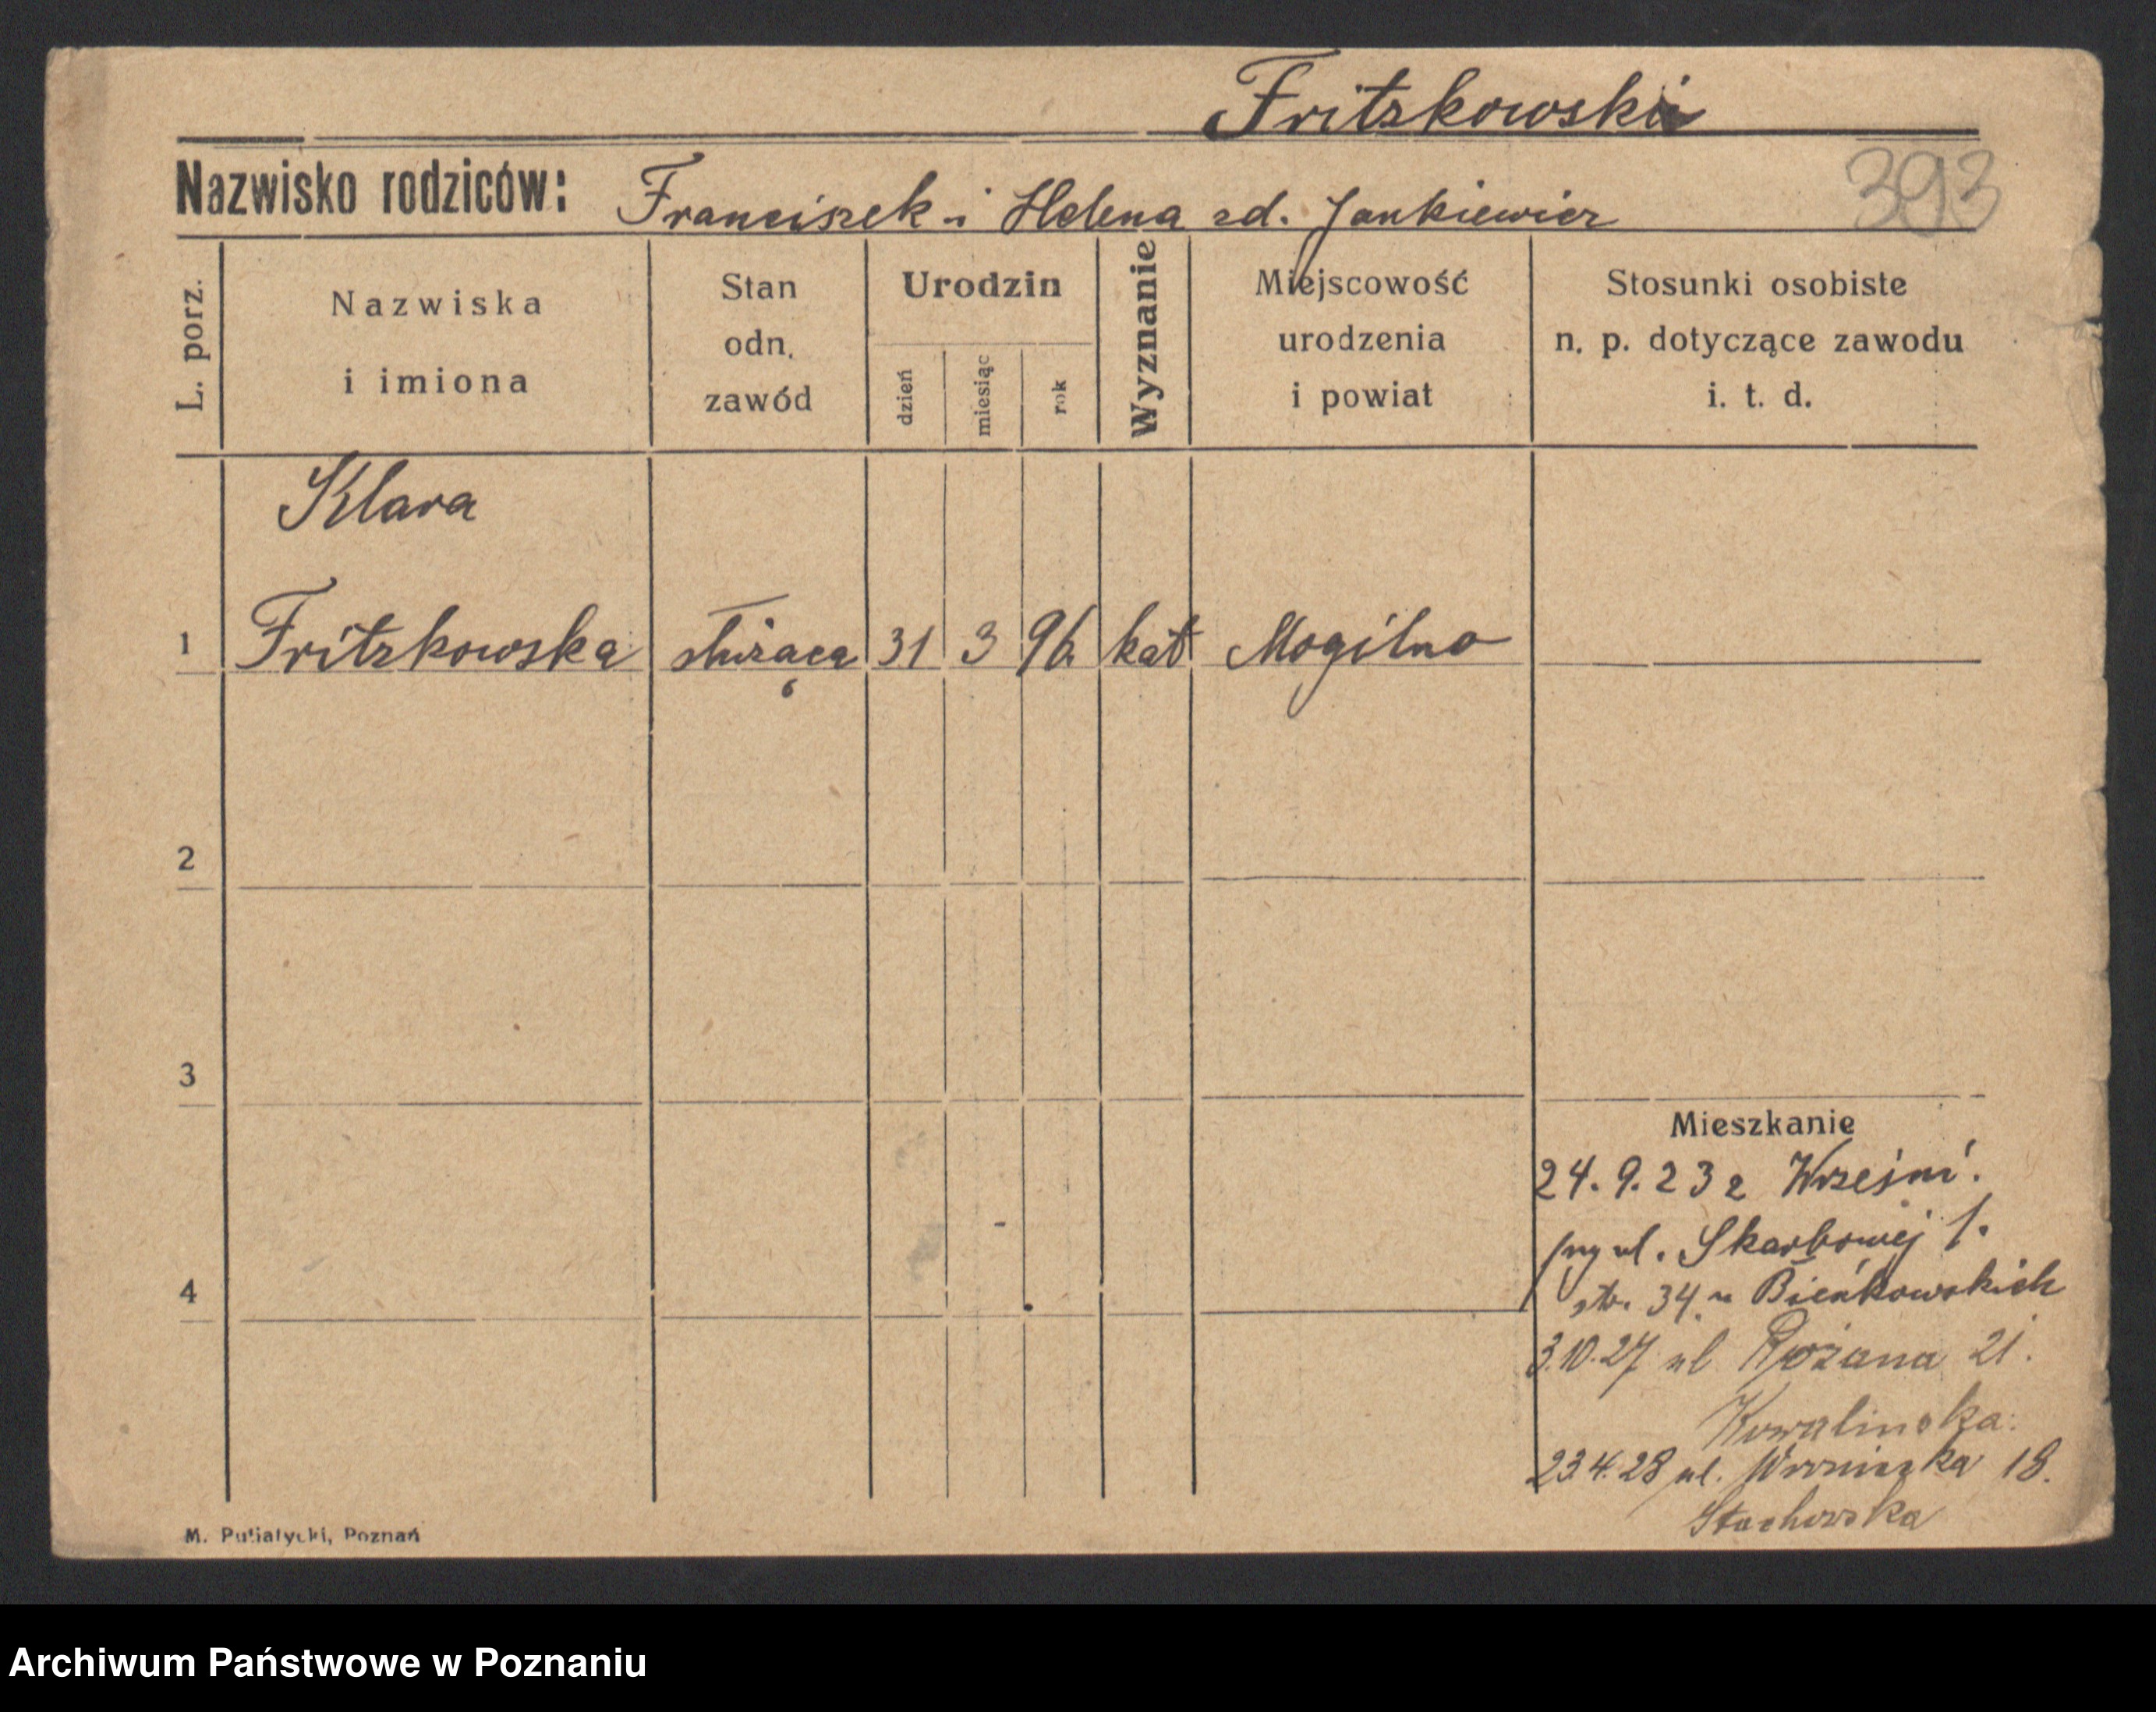 Fritzkowski
Nazwisko rodziców: Franciszek i Helena zd. Jankiewicz
393
L. porz.
Nazwiska
i imiona
Stan
odn.
zawód
Urodzin
dzień
miesiąc
rok
Wyznanie
Miejscowość
urodzenia
i powiat
Stosunki osobiste
n. p. dotyczące zawodu
i. t. d.
Klara
1 Fritzkowska służąca 31 3 96. kat Mogilno
2
3
Mieszkanie
24.9.23 z Wrześni.
przy ul. Skarbowej 1.
4
str. 34. u Bieńkowskich
3.10.27 ul Różana 21.
Kowalinska.
23.4.28 ul. Wroniecka 18.
Stachowska
M. Putiatycki, Poznań
Archiwum Państwowe w Poznaniu